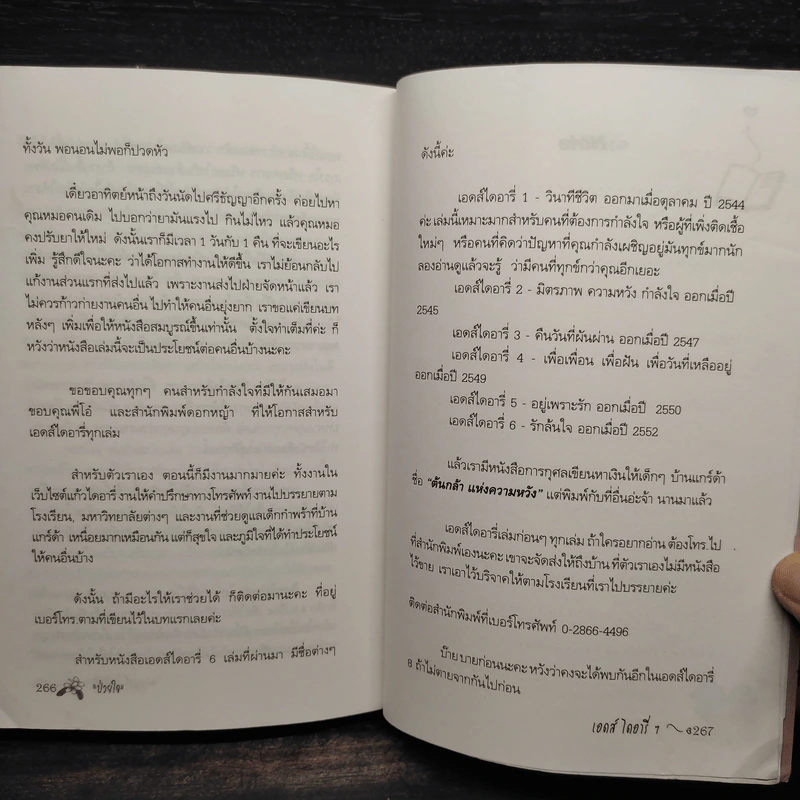 ทั้งวัน พอนอนไม่พอก็ปวดหัว
เดี๋ยวอาทิตย์หน้าถึงวันนัดไปศรีธัญญาอีกครั้ง ค่อยไปหา
คุณหมอคนเดิม ไปบอกว่ายามันแรงไป กินไม่ไหว แล้วคุณหมอ
คงปรับยาให้ใหม่ ดังนั้นเราก็มีเวลา 1 วันกับ 1 คืน ที่จะเขียนอะไร
เพิ่ม รู้สึกดีใจนะคะ ว่าได้โอกาสทำงานให้ดีขึ้น เราไม่ย้อนกลับไป
แก้งานส่วนแรกที่ส่งไปแล้ว เพราะงานส่งไปฝ่ายจัดหน้าแล้ว เรา
ไม่ควรก้าวก่ายงานคนอื่น ไปทำให้คนอื่นยุ่งยาก เราขอแค่เขียนบท
หลังๆ เพิ่มเพื่อให้หนังสือสมบูรณ์ขึ้นเท่านั้น ตั้งใจทำเต็มที่ค่ะ ก็
หวังว่าหนังสือเล่มนี้จะเป็นประโยชน์ต่อคนอื่นบ้างนะคะ
ขอขอบคุณทุกๆ คนสำหรับกำลังใจที่มีให้กันเสมอมา
ขอบคุณพี่โอ๋ และสำนักพิมพ์ดอกหญ้า ที่ให้โอกาสสำหรับ
เอดส์ไดอารี่ทุกเล่ม
สำหรับตัวเราเอง ตอนนี้ก็มีงานมากมายค่ะ ทั้งงานใน
เว็บไซต์แก้วไดอารี่ งานให้คำปรึกษาทางโทรศัพท์ งานไปบรรยายตาม
โรงเรียน, มหาวิทยาลัยต่างๆ และงานที่ช่วยดูแลเด็กกำพร้าที่บ้าน
แกร์ด้า เหนื่อยมากเหมือนกัน แต่ก็สุขใจ และภูมิใจที่ได้ทำประโยชน์
ให้คนอื่นบ้าง
ดังนั้น ถ้ามีอะไรให้เราช่วยได้ ก็ติดต่อมานะคะ ที่อยู่
เบอร์โทร.ตามที่เขียนไว้ในบทแรกเลยค่ะ
สำหรับหนังสือเอดส์ไดอารี่ 6 เล่มที่ผ่านมา มีชื่อต่างๆ
266 "ป่วยใจ"
ดังนี้ค่ะ
เอดส์ไดอารี่ 1 - วินาทีชีวิต ออกมาเมื่อตุลาคม ปี 2544
ค่ะ เล่มนี้เหมาะมากสำหรับคนที่ต้องการกำลังใจ หรือผู้ที่เพิ่งติดเชื้อ
ใหม่ๆ หรือคนที่คิดว่าปัญหาที่คุณกำลังเผชิญอยู่มันทุกข์มากนัก
ลองอ่านดูแล้วจะรู้ ว่ามีคนที่ทุกข์กว่าคุณอีกเยอะ
เอดส์ไดอารี่ 2 - มิตรภาพ ความหวัง กำลังใจ ออกเมื่อปี
2545
เอดส์ไดอารี่ 3 - คืนวันที่ผันผ่าน ออกเมื่อปี 2547
เอดส์ไดอารี่ 4 - เพื่อเพื่อน เพื่อฝัน เพื่อวันที่เหลืออยู่
ออกเมื่อปี 2549
เอดส์ไดอารี่ 5 - อยู่เพราะรัก ออกเมื่อปี 2550
เอดส์ไดอารี่ 6 - รักล้นใจ ออกเมื่อปี 2552
แล้วเรามีหนังสือการกุศลเขียนหาเงินให้เด็กๆ บ้านแกร์ด้า
ชื่อ "ต้นกล้า แห่งความหวัง" แต่พิมพ์กับที่อื่นอะจ้า นานมาแล้ว
เอดส์ไดอารี่เล่มก่อนๆ ทุกเล่ม ถ้าใครอยากอ่าน ต้องโทร.ไป
ที่สำนักพิมพ์เองนะคะ เขาจะจัดส่งให้ถึงบ้าน ที่ตัวเราเองไม่มีหนังสือ
ไว้ขาย เราเอาไว้บริจาคให้ตามโรงเรียนที่เราไปบรรยายค่ะ
ติดต่อสำนักพิมพ์ที่เบอร์โทรศัพท์ 0-2866-4496
บ๊าย บายก่อนนะคะ หวังว่าคงจะได้พบกันอีกในเอดส์ไดอารี่
8 ถ้าไม่ตายจากกันไปก่อน
เอดส์ ไดอารี่ 7 267